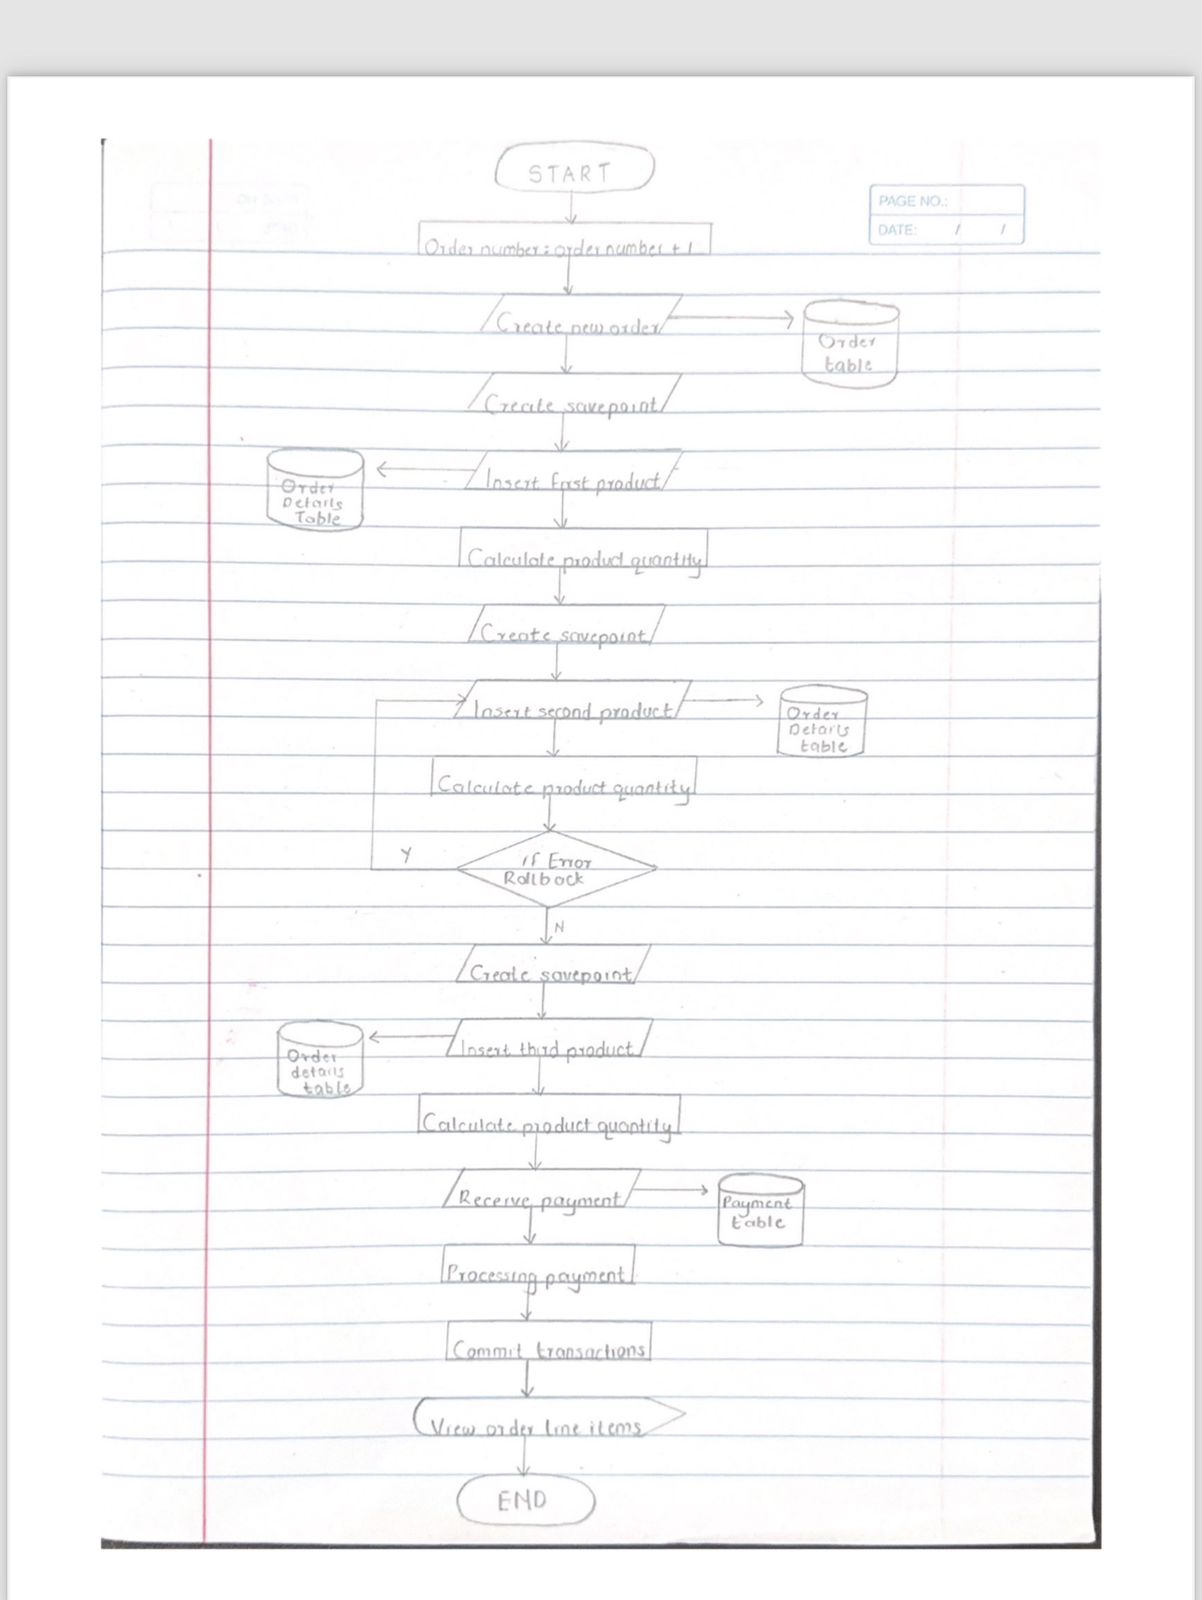 START
PAGE NO.:
DATE: / /
Order number = order number + 1
Create new order
Order
table
Create savepoint
Insert first product
Order
Details
Table
Calculate product quantity
Create savepoint
Insert second product
Order
Details
table
Calculate product quantity
Y
if Error
Rollback
N
Create savepoint
Insert third product
Order
details
table
Calculate product quantity
Receive payment
Payment
table
Processing payment
Commit transactions
View order line items
END